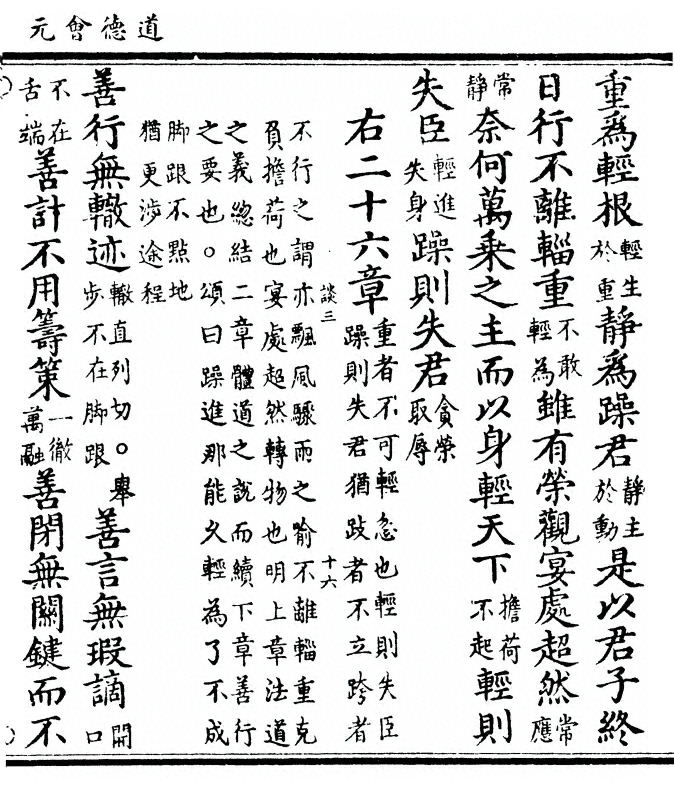 道德會元
重爲輕根輕生於重靜爲躁君靜主於動是以君子終
日行不離輜重不敢輕為雖有榮觀宴處超然常應
常靜奈何萬乘之主而以身輕天下擔荷不起輕則
失臣輕進失身躁則失君貪榮取辱
右二十六章重者不可輕忽也輕則失臣
躁則失君猶跂者不立跨者
談三
十六
不行之謂亦飄風驟雨之喻不離輜重克
負擔荷也宴處超然轉物也明上章法道
之義總結二章體道之說而續下章善行
之要也。頌曰躁進那能久輕為了不成
脚跟不點地
猶更涉途程
善行無轍迹轍直列切。舉步不在脚跟善言無瑕讁開口
不在舌端善計不用籌策一徹萬融善閉無關鍵而不